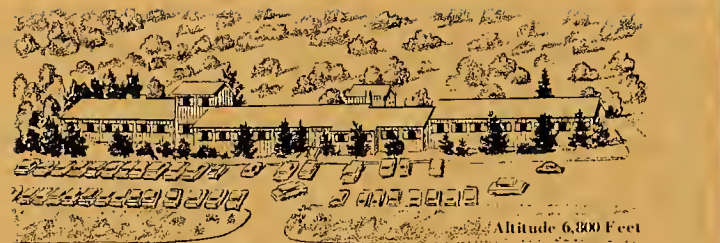 Altitude 6,800 Feet